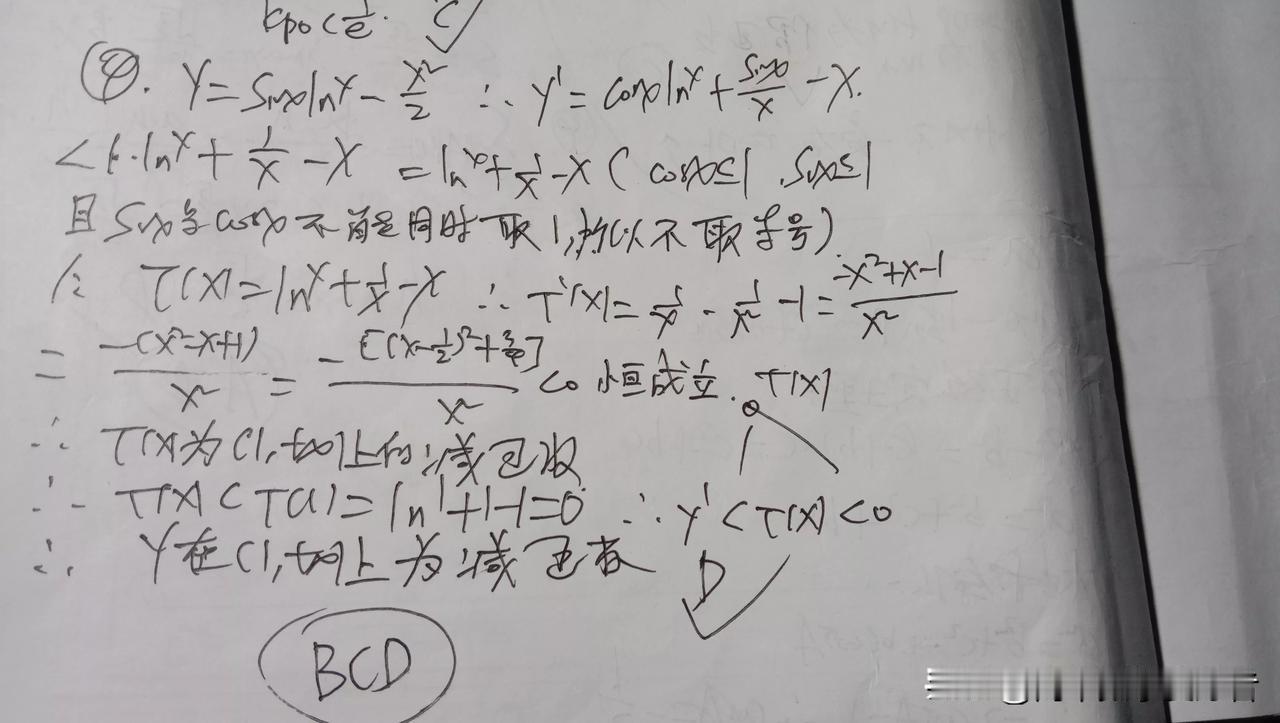 kpo<1/e. C✓
④. Y=Sinx ln^x - x²/2 ∴ Y'=cosx ln^x + sinx/x - X.
<1·ln^x + 1/x - X = ln^x + 1/x - X ( cosx≤1 .Sinx≤1
且Sinx与cosx不能同时取1,所以不取等号)
令 T(X)=ln^x + 1/x - X ∴ T'(X)= 1/x - 1/x² - 1 = -x²+x-1/x²
= -(x²-x+1)/x² = -[(x-1/2)²+3/4]/x² <0 恒成立. T(X)
∴ T(X)为(1,+∞)上的减函数
∴ T(X)<T(1)=ln^1+1-1=0 ∴ Y'<T(X)<0
∴ Y在(1,+∞)上为减函数 D✓
BCD